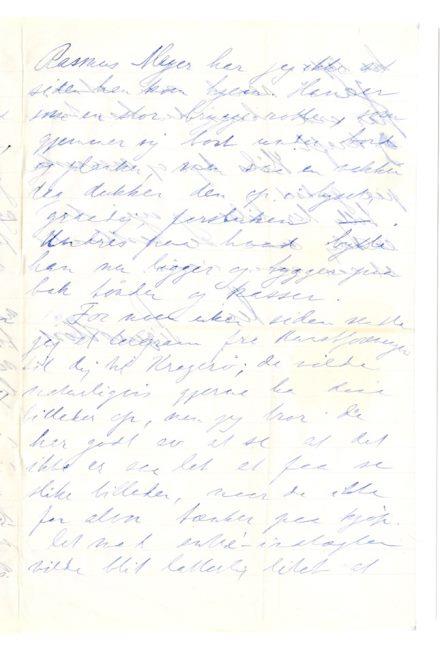 Rasmus Meyer har jeg ikke set
siden han kom hjem. Han er
som en stor bryggerotte, som
gjemmer sig bort under bord
og planker, men saa en vakker
dag dukker den op
Undres paa hvad
han nu ligger og bygger paa
bak tønder og kasser.
For noen uker siden sendte
jeg et telegram fra Kunstforeningen
til dig til Kragerø; de vilde
naturligvis gjerne ha dine
billeder op, men jeg tror de
har godt av at se at det
ikke er saa let at faa se
slike billeder, naar de ikke
for alvor tænker paa kjøp.
Det med entré-indtægten
vilde blit latterlig litet at